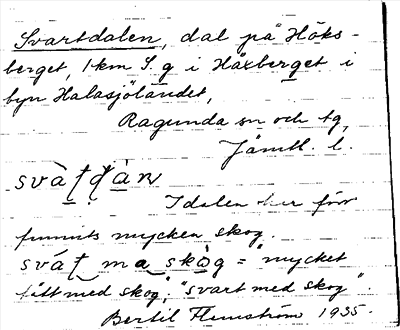 Svartdalen, dal på Höks-
berget, 1 km S. g i Håxberget i
byn Halasjölandet,
Ragunda sn och tg,
Jämtl. l.
svàʈɖàn
I dalen har förr
funnits mycken skog.
sváʈ ma skòg = "mycket
tätt med skog," "svart med skog".
Bertil Flemström 1935.